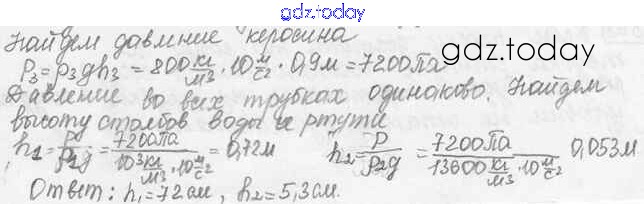 gdz.today
Найдем давление керосина
P₃=ρ₃gh₃ = 800 кг/м³ · 10 м/с² · 0,9м = 7200Па
gdz.today
Давление во всех трубках одинаково. Найдем
высоту столбов воды и ртути
h₁ = P/ρ₁g = 7200Па/10³ кг/м³ · 10 м/с² = 0,72м h₂ = P/ρ₂g = 7200Па/13600 кг/м³ · 10 м/с² 0,053м
Ответ: h₁ = 72см, h₂ = 5,3см.